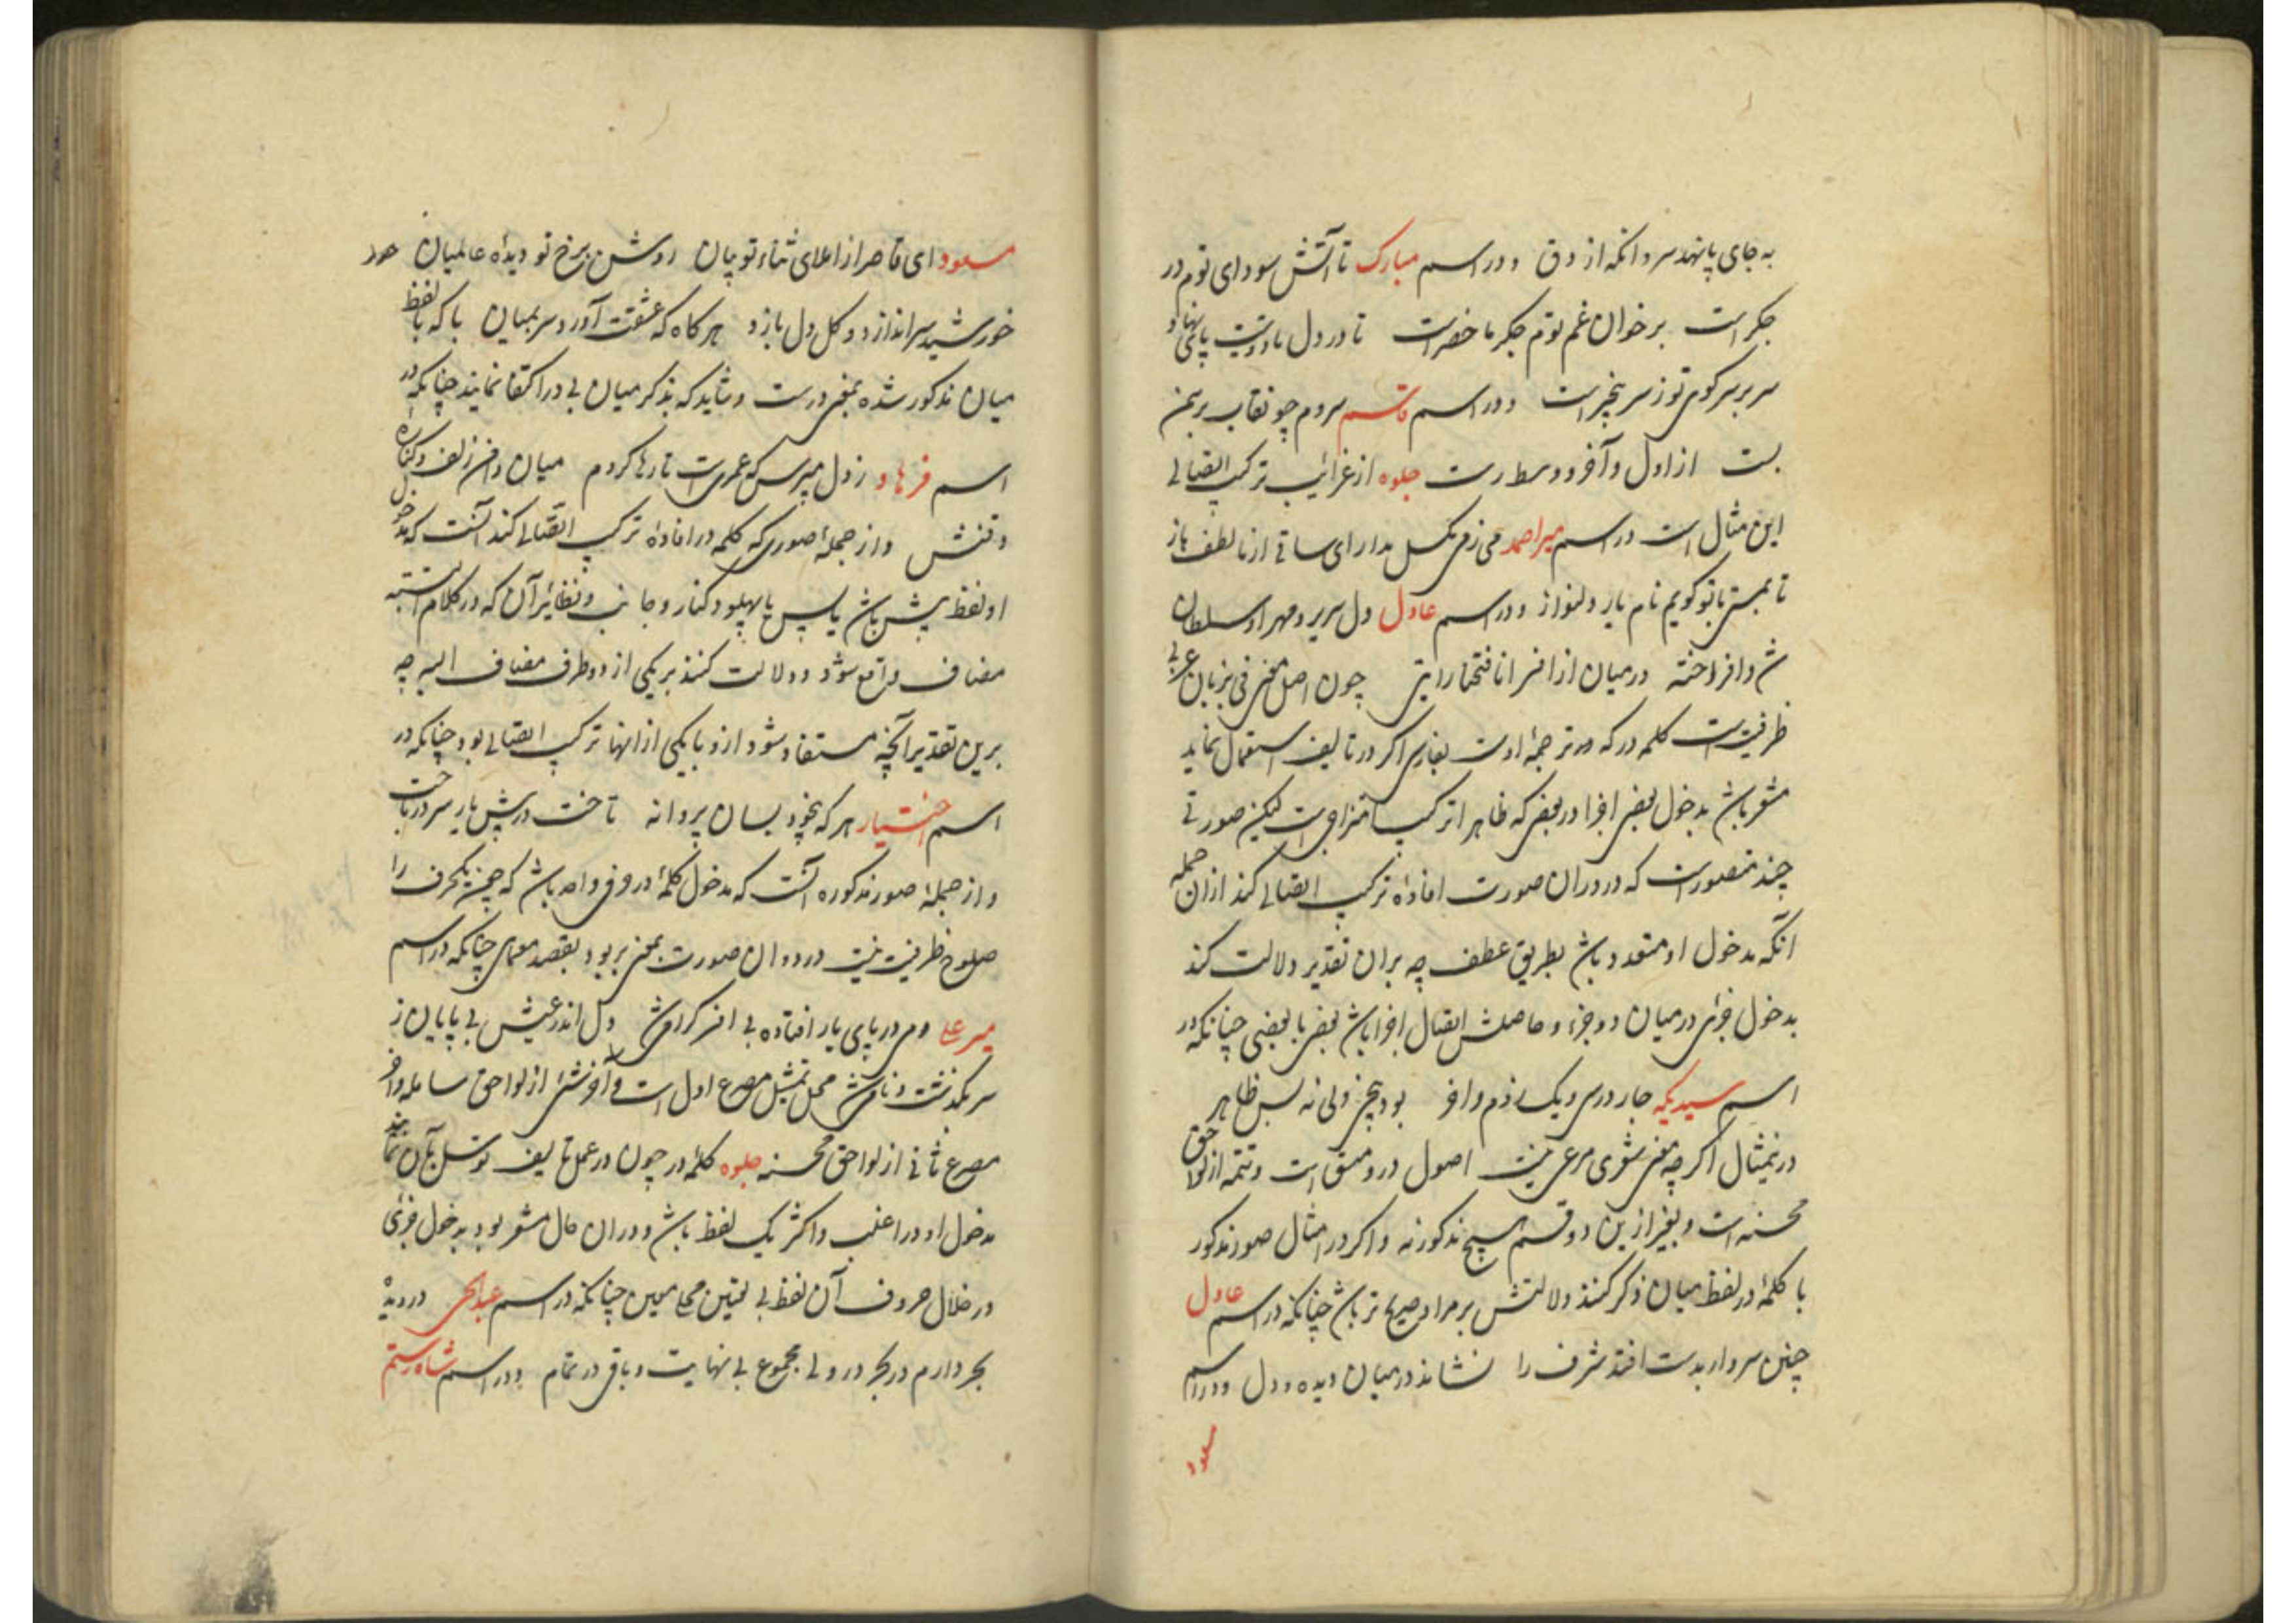 به جای پا نهد سر و انکه از دق و در اسم مبارک تا آتش سودای توم در
جکر است بر خوان غم توم جکر ما حضر است تا در دل ما دوستیت پا بنهاد
سر بر سر کوی تو ز سر بیخبر است و در اسم قاسم سروم چو نقاب بر سمن
بست از اول و آخر و وسط رست جلوه از غرائب ترکیب اتصالی
این مثال است در اسم میر احمد می ز می بکسل مدارای ساقی از ما لطف باز
تا بمستی با تو کویم نام یار دلنواز و در اسم عادل دل سریر و مهر او سلطان
ش و افراخته در میان از افسر انا فتحنا رایتی چون اصل معنی فی بزبان عربی
ظرفیت است کلمه در که در ترجمه اوست بفارسی اکر در تالیف استعمال نماید
مشعر باشد بدخول بعضی اجزا در بعضی که ظاهرا ترکیب امتزاجی است لیکن صورتی
چند متصور است که در دران صورت افاده ترکیب اتصالی کند ازان جمله
انکه مدخول او متعدد باشد بطریق عطف چه بران تقدیر دلالت کند
بدخول جزئی در میان دو جزء و حاصلش اتصال اجزا باشد بعضی با بعضی چنانکه در
اسم سید یکه چار در سی و یک در دم و آخر بود هیچز ولی نه بس ظاهر
درین مثال اکرچه معنی شعری مرعی نیست اصول درو متسق است و تتمه از لواحق
محسنه است و بغیر ازین دو قسم هیچ مذکور نه و اکر در امثال صور مذکور
با کلمۀ در لفظ میان ذکر کنند دلالتش بر مراد صریح تر باشد چنانکه در اسم عادل
چنین سر وار بدست افتد شرف را نشاند در میان دیده و دل و در اسم
مسعود
مسعود ای قاصر از اعلای ثناء تو بیان روشن برخ تو دیدۀ عالمیان صد
خورشید سر اندازد و کل دل بازد هر کاه که عشقت آورد سر بمیان با که با لفظ
میان مذکور شده بمعنی درست و شاید که بذکر میان بی در اکتفا نمایند چنانکه در
اسم فرهاد ز دل مپرس که عمریست تا رها کردم میان دفن زلف و کنارۀ
دقنش و از جملۀ صوری که کلمه در افادۀ ترکیب اتصالی کند آنست که مدخول
او لفظ پیش باشد یا پس یا پهلو و کنار و جانب و نظائر آن که در کلام البته
مضاف واقع شود و دلالت کند بر یکی از دو طرف مضاف الیه چه
برین تقدیر آنچه مستفاد شود ازو با یکی ازانها ترکیب اتصالی بود چنانکه در
اسم اختیار هر که بیخود بسان پروانه تاخت در پیش یار سر در باخت
و از جملۀ صور مذکوره آنست که مدخول کلمۀ در حرفی واحد باشد که چون یکحرف را
صلوح ظرفیت نیست در دران صورت بمعنی بر بود بقصد معمای چنانکه در اسم
میر علی دمی در پای یار افتاده بی افسر کرامی شد دل اندر عیش بی پایان ز
سر بکذشت و نامی شد محل تمثیل مصرع اول است و آخر شئ از لواحق سامله و آخر
مصرع ثانی از لواحق محسنه جلوه کلمۀ در چون در عمل تالیف توسل بآن نمایند
مدخول او در اغلب و اکثر یک لفظ باشد و دران حال مشعر بود بدخول جزئی
در خلال حروف آن لفظ بی تعیین محلی معین چنانکه در اسم عبدالحی در دیدۀ
بحر دارم در بحر در ولی مجموع بی نهایت و باقی در تمام و در اسم شاه رستم